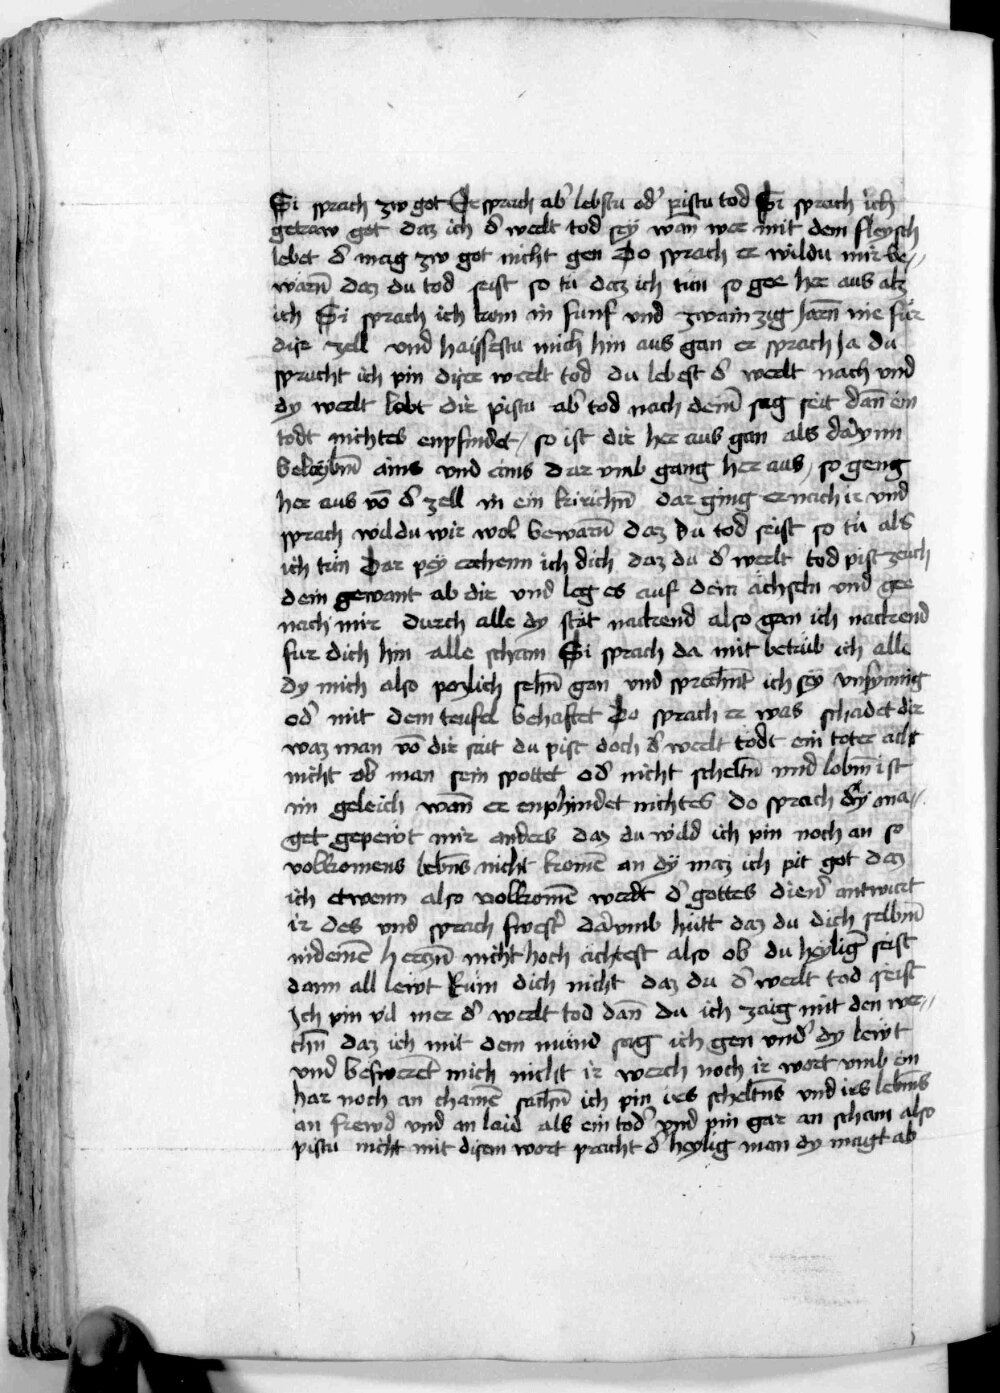 Si sprach zw got Er sprach ab' lebstu od' pistu tod Si sprach ich
getraw got daz ich d' werlt tod sey wan̄ wer mit dem fleysch
lebet d' mag zw got nicht gen Do sprach er wildu mir be//
warn̄ daz du tod seist so tu daz ich tun so gee her aus alz
ich Si sprach ich kom in funf vnd zwainzig Jarn̄ nie für
dise zell vnd haissestu mich hin aus gan er sprach Ja du
spracht ich pin diser werlt tod du lebest d' werlt nach vnd
dy werlt lebt dir pistu ab' tod nach deim̄ sag seit dan̄ ein
todt nichtes enpfindet / so ist dir her aus gan als dar ynn
beleybm̄ ains vnd ains Dar vmb gang her aus / so geng
her aus vō d' zell in ein kirichn̄ dar ging er nach ir vnd
sprach wildu mir wol bewarn̄ daz du tod seist so tu als
ich tun Dar pey erchenn ich dich daz du d' werlt tod pist zeuch
dein gewant ab dir vnd leg es auf dein achseln vnd gee
nach mir durch alle dy stat nackend also gan ich nackend
fur dich hin alle scham Si sprach da mit betrüb ich alle
dy mich also pozlich sehn̄ gan vnd sprechn̄t ich sey vnsynnig
od' mit dem teufel behaftet Do sprach er was schadet dir
waz man vō dir sait du pist doch d' werlt todt ein toter acht
nicht ob man sein spottet od' nicht scheltn̄ und lobm̄ ist
im geleich wan̄ er enphindet nichtes Do sprach dy ma//
get gepewt mir anders daz du wild ich pin noch an so
volkomens lebn̄s nicht komē an dy maz ich pit got daz
ich etwenn also volkomē werdt d' gottes dien' antwurt
ir des vnd sprach swest' dar vmb hütt daz du dich selbm̄
in demē herczn̄ nicht hoch achtest also ob du heylig' seist
dann all lewt Rüm dich nicht daz du d' werlt tod seist
Ich pin vil mer d' werlt tod dan̄ du ich zaig mit den wer//
chn̄ daz ich mit dem mund sag ich gen vnd' dy lewt
vnd beswerēt mich nicht ir werch noch ir wort vmb ein
har noch an chainē sachn̄ ich pin irs scheltn̄s vnd irs lebm̄s
an frewd vnd an laid als ein tod' vnd pin gar an scham also
pistu nicht mit disem wort pracht d' heylig man dy magt ab